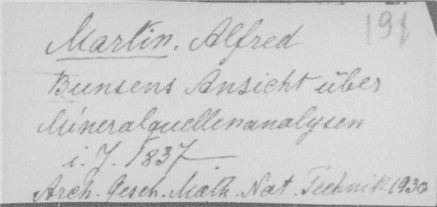 191
Martin. Alfred
Bunsens Ansicht über
Mineralquellenanalysen
i. J. 1837
Arch. Gesch. Math. Nat. Technik 1930